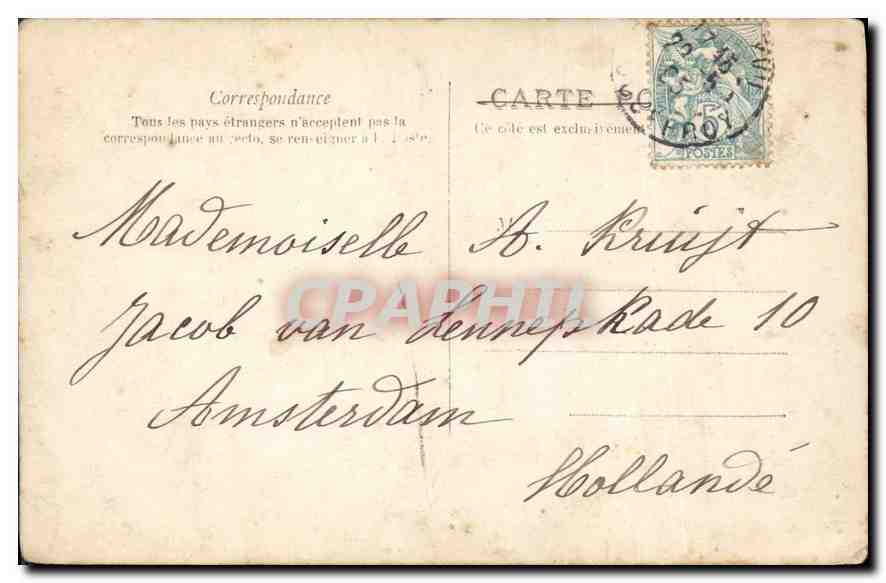 Correspondance
Tous les pays étrangers n'acceptent pas la
correspondance au recto, se renseigner à la Poste.
CARTE PO
Ce côté est exclusivement
17 15
5
POSTES
M
Mademoiselle A. Kruijt
Jacob van Lennepkade 10
Amsterdam
Hollandé
CPAPHIL